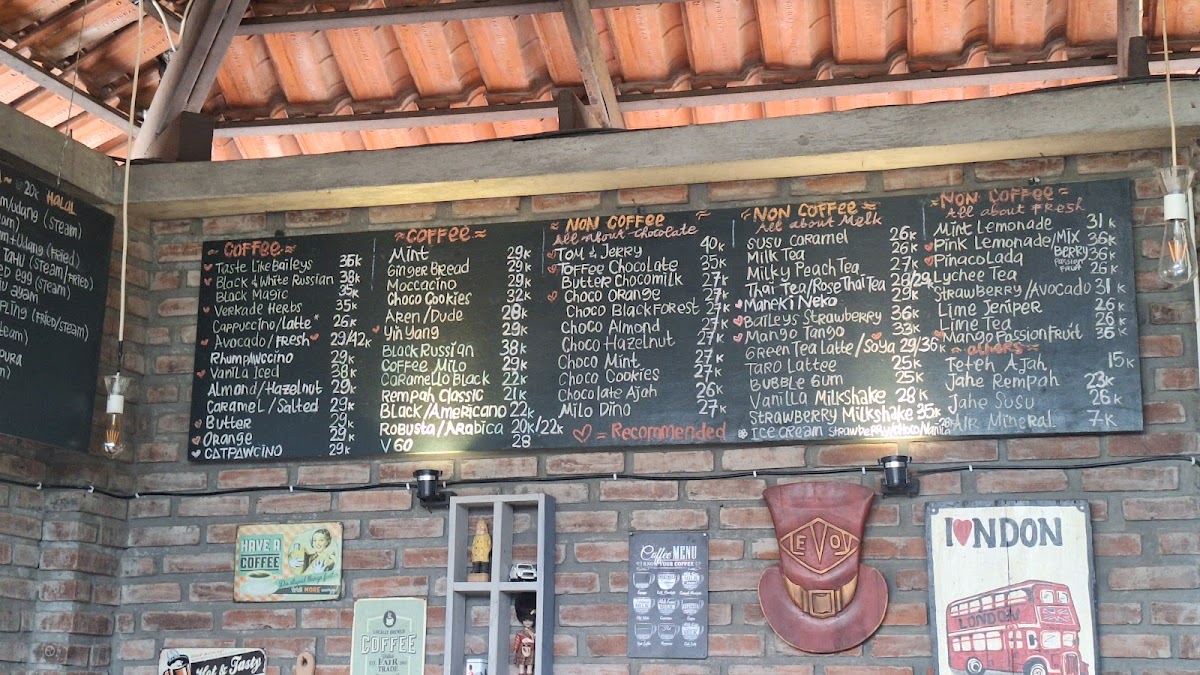 @ 20K HALAL
(STEAM)
COFFEE
Taste Like Baileys 36K
Black & White Russian 38K
Black Magic 35K
Verkade Herbs 35K
Cappuccino/Latte 26K
Avocado/Fresh 29/42K
Rhumpawccino 29K
Vanilla Iced 38K
Almond/Hazelnut 29K
Caramel/Salted 29K
Butter 29K
Orange 29K
CATPAWCINO 29K
COFFEE
Mint 29K
Ginger Bread 29K
Moccacino 29K
Choco Cookies 32K
Aren/Dude 28K
Yin Yang 29K
Black Russian 38K
Coffee Milo 29K
Caramello Black 22K
Rempah Classic 21K
Black/Americano 22K
Robusta/Arabica 20K/22K
V60 28
NON COFFEE
All About Chocolate
Tom & Jerry 40K
Toffee Chocolate 35K
Butter Chocomilk 27K
Choco Orange 27K
Choco Black Forest 27K
Choco Almond 27K
Choco Hazelnut 27K
Choco Mint 27K
Choco Cookies 27K
Chocolate Ajah 26K
Milo Dino 27K
= Recommended
NON COFFEE
All About Melk
Susu Caramel 26K
Milk Tea 26K
Milky Peach Tea 27K
Thai Tea/Rose Thai Tea 28/29K
Maneki Neko 29K
Baileys Strawberry 36K
Mango Tango 33K
Green Tea Latte/Soya 29/36K
Taro Lattee 25K
Bubble Gum 25K
Vanilla Milkshake 28K
Strawberry Milkshake 35K
Ice Cream Strawberry/Choco/Vanila
NON COFFEE
All about Fresh
Mint Lemonade 31K
Pink Lemonade/MIX BERRY 36K
Pinacolada PASSION FRUIT 36K
Lychee Tea 26K
Strawberry/Avocado 31K
Lime Jeniper 26K
Lime Tea 26K
Mango Passion Fruit 36K
others
Teteh Ajah 15K
Jahe Rempah 23K
Jahe Susu 26K
Air Mineral 7K
HAVE A
COFFEE
COFFEE
FAIR
TRADE
Hot & Tasty
Coffee MENU
KNOW YOUR COFFEE
LEVOY
I NDON
LONDON